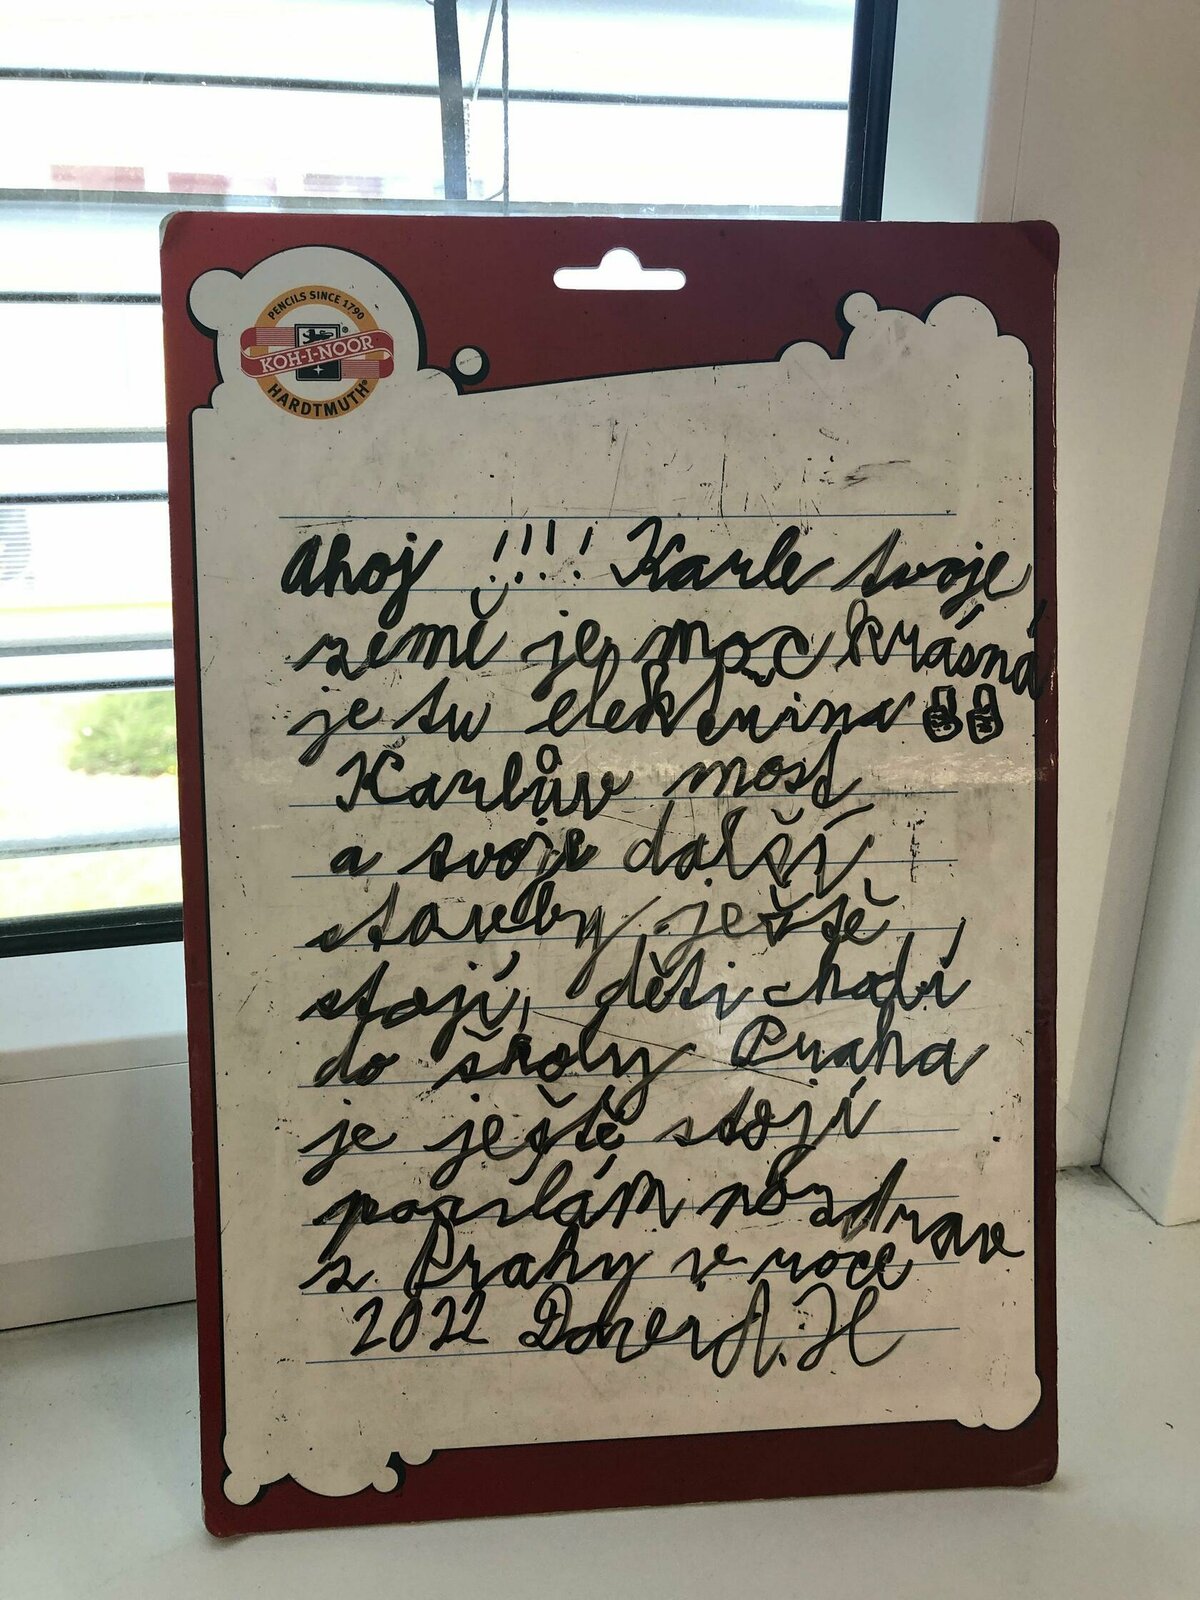 PENCILS SINCE 1790
KOH-I-NOOR
®
HARDTMUTH®
Ahoj !!!! Karle tvoje
země je moc krásná
je tu elektřina
Karlův most
a tvoje další
stavby ještě
stojí, děti chodí
do školy Praha
je ještě stojí
posílám pozdrav
z Prahy v roce
2022 A. H